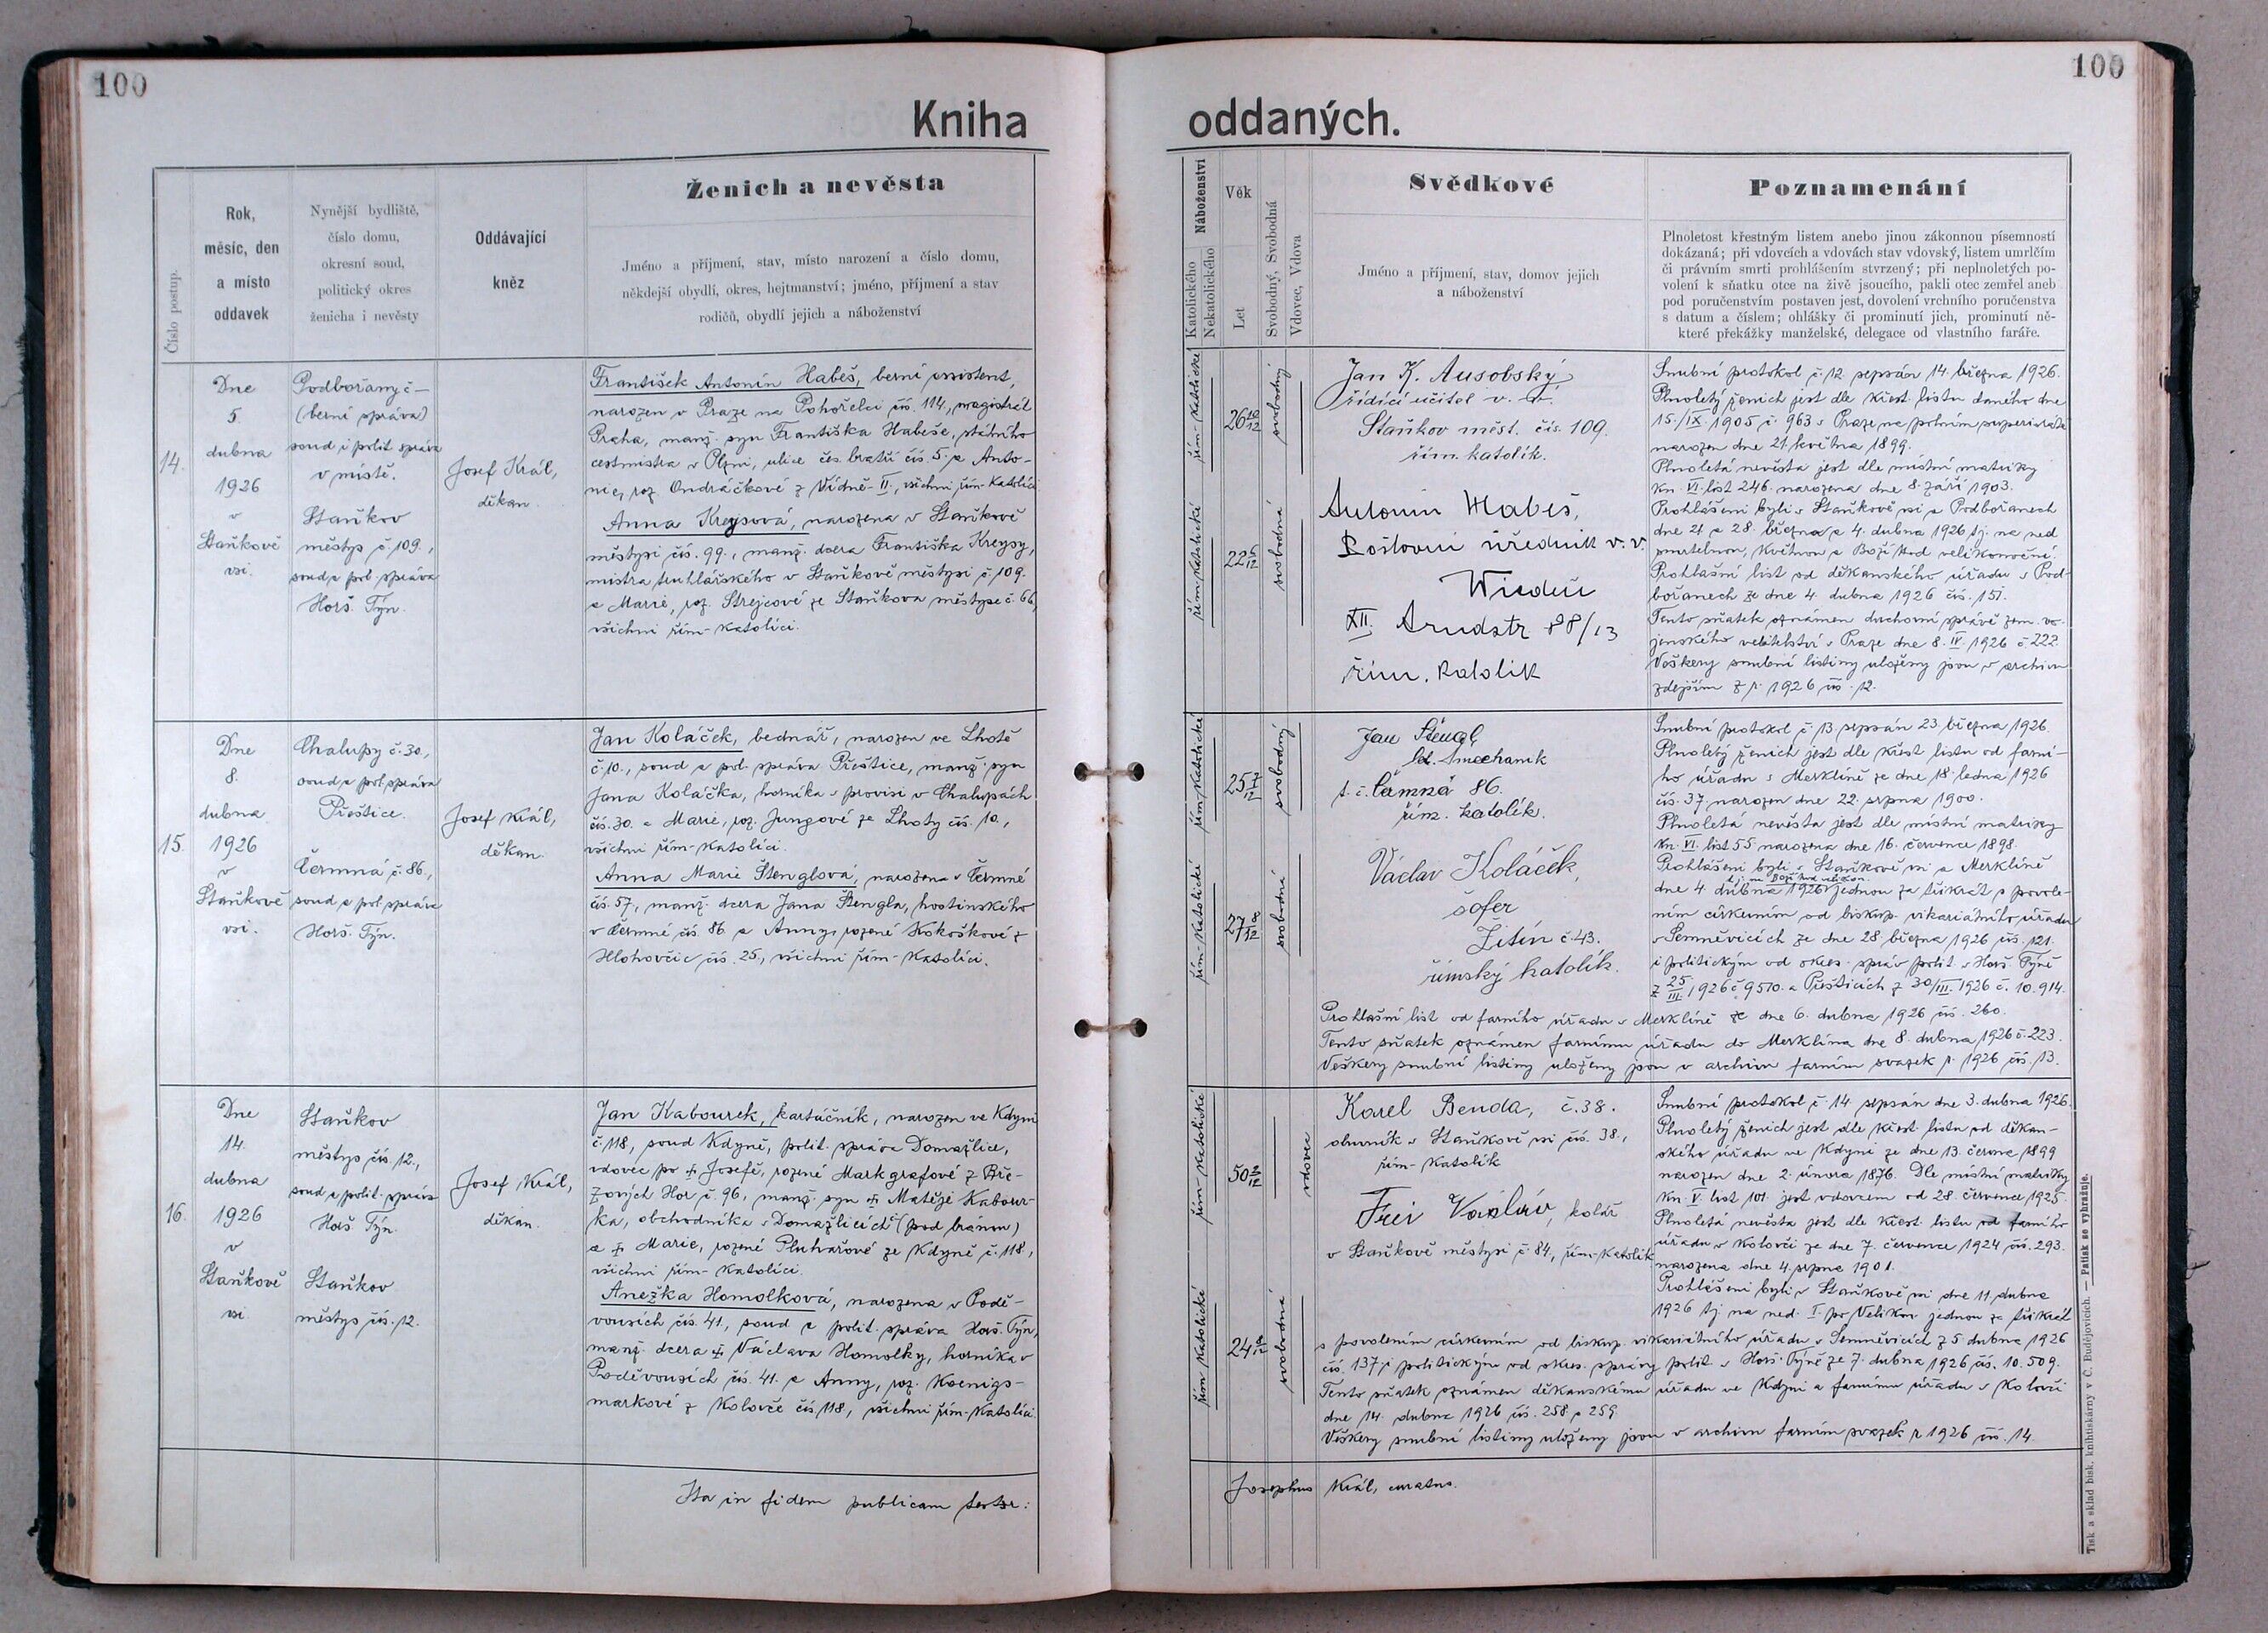 100
100
Kniha
oddaných.
Číslo postup.
Rok,
měsíc, den
a místo
oddavek
Nynější bydliště,
číslo domu,
okresní soud,
politický okres
ženicha i nevěsty
Oddávající
kněz
Ženich a nevěsta
Jméno a příjmení, stav, místo narození a číslo domu,
někdejší obydlí, okres, hejtmanství; jméno, příjmení a stav
rodičů, obydlí jejich a náboženství
14.
Dne
5.
dubna
1926
v
Staňkově
vsi.
Podbořany č –
(berní správa)
soud i polit správa
v místě.
Staňkov
městys č. 109.,
soud a pol. správa
Horš. Týn.
Josef Král,
děkan.
František Antonín Habeš, berní assistent,
narozen v Praze na Pohořelci čís. 114., magistrát
Praha, manž. syn Františka Habeše, státního
cestmistra v Plzni, ulice čes. bratří čís. 5. a Anto-
nie, roz. Ondráčkové z Vídně-II., všichni řím-katolíci
Anna Kreysová, narozena v Staňkově
městysi čís. 99., manž. dcera Františka Kreysy,
mistra truhlářského v Staňkově městysi č. 109.
a Marie, roz. Strejcové ze Staňkova městyse č. 66,
všichni řím-katolíci.
15.
Dne
8.
dubna
1926
v
Staňkově
vsi.
Chalupy č. 30.,
soud a pol. správa
Přeštice.
Čermná č. 86.,
soud a pol. správa
Horš. Týn.
Josef Král,
děkan.
Jan Koláček, bednář, narozen ve Lhotě
č. 10., soud a pol. správa Přeštice, manž. syn
Jana Koláčka, horníka v provisi v Chalupách
čís. 30. a Marie, roz. Jungové ze Lhoty čís. 10.,
všichni řím-katolíci.
Anna Marie Štenglová, narozena v Čermné
čís. 57., manž. dcera Jana Štengla, hostinského
v Čermné čís. 86. a Anny, rozené Kokoškové z
Hlohovčic čís. 25., všichni řím-katolíci.
16.
Dne
14.
dubna
1926
v
Staňkově
vsi.
Staňkov
městys čís. 12.,
soud a polit. správa
Horš. Týn.
Staňkov
městys čís. 12.
Josef Král,
děkan.
Jan Kabourek, kartáčník, narozen ve Kdyni
č. 118, soud Kdyně, polit. správa Domažlice,
vdovec po Josefě, rozené Markgrafové z Bře-
zových Hor č. 96., manž. syn Matěje Kabour-
ka, obchodníka v Domažlicích (pod bránou)
a Marie, rozené Pluhařové ze Kdyně č. 118,
všichni řím-katolíci.
Anežka Homolková, narozena v Podě-
vousích čís. 41., soud a polit. správa Horš. Týn,
manž. dcera Václava Homolky, horníka v
Poděvousích čís. 41. a Anny, roz. Koenigs-
markové z Kolovče čís. 118, všichni řím-katolíci.
Ita in fidem publicam testor:
Náboženství
Katolického
Nekatolického
Věk
Let
Svobodný, Svobodná
Vdovec, Vdova
Svědkové
Jméno a příjmení, stav, domov jejich
a náboženství
Poznamenání
Plnoletost křestným listem anebo jinou zákonnou písemností
dokázaná; při vdovcích a vdovách stav vdovský, listem umrlčím
či právním smrti prohlášením stvrzený; při neplnoletých po-
volení k sňatku otce na živě jsoucího, pakli otec zemřel aneb
pod poručenstvím postaven jest, dovolení vrchního poručenstva
s datum a číslem; ohlášky či prominutí jich, prominutí ně-
které překážky manželské, delegace od vlastního faráře.
řím-katolické
26 10/12
svobodný
řím-katolické
22
svobodná
Jan K. Ausobský,
řídící učitel v. v.
Staňkov měst. čís. 109.
řím. katolík.
Antonin Habeš,
Poštovni úřednik v. v.
Wiedeň
XII. Arndstr 88/13
řím. katolík
Snubní protokol č. 12. sepsán 14. března 1926.
Plnoletý ženich jest dle křest. listu daného dne
15./IX. 1905 č. 963 v Praze na polním superiorátě
narozen dne 21. května 1899.
Plnoletá nevěsta jest dle místní matriky
kn. VI. list 246. narozena dne 8. září 1903.
Prohlášeni byli v Staňkově vsi a Podbořanech
dne 21. a 28. března a 4. dubna 1926 tj. na ned.
smrtelnou, květnou a Boží hod velikonoční.
Prohlašní list od děkanského úřadu v Pod-
bořanech ze dne 4. dubna 1926 čís. 151.
Tento sňatek oznámen duchovní správě zem. vo-
jenského velitelství v Praze dne 8. IV. 1926 č. 222.
Veškery snubní listiny uloženy jsou v archivu
zdejším z r. 1926 čís. 12.
řím-katolické
25 7/12
svobodný
řím-katolické
27 8/12
svobodná
Jan Štengl,
mechanik
t. č. Čermná 86.
řím. katolík.
Václav Koláček,
šofer
Žitín č. 43.
římský katolík.
Snubní protokol č. 13. sepsán 23. března 1926.
Plnoletý ženich jest dle křest listu od farní-
ho úřadu v Merklíně ze dne 18. ledna 1926
čís. 37. narozen dne 22. srpna 1900.
Plnoletá nevěsta jest dle místní matriky
kn. VI. list 55. narozena dne 16. července 1898.
Prohlášeni byli v Staňkově vsi a Merklíně
tj. na Boží hod velikon.
dne 4. dubna 1926 jednou za třikrát s povole-
ním církevním od biskup. vikariátního úřadu
v Semněvicích ze dne 28. března 1926 čís. 121.
i politickým od okres. správ polit. v Horš. Týně
z 25/III. 1926 č. 9510. a Přešticích z 30/III. 1926 č. 10.914.
Prohlašní list od farního úřadu v Merklíně ze dne 6. dubna 1926 čís. 260.
Tento sňatek oznámen farnímu úřadu do Merklína dne 8. dubna 1926 č. 223.
Veškery snubní listiny uloženy jsou v archivu farním svazek r. 1926 čís. 13.
řím-katolické
50 2/12
vdovec
řím katolické
24
svobodná
Karel Benda, č. 38.
obuvník v Staňkově vsi čís. 38.,
řím-katolík
Frei Václav, kolář
v Staňkově městysi č. 84, řím-katolík
Snubní protokol č. 14. sepsán dne 3. dubna 1926.
Plnoletý ženich jest dle křest. listu od děkan-
ského úřadu ve Kdyni ze dne 13. června 1899
narozen dne 2. února 1876. Dle místní matriky
kn. V. list 101. jest vdovcem od 28. července 1925.
Plnoletá nevěsta jest dle křest. listu od farního
úřadu v Kolovči ze dne 7. července 1924 čís. 293.
narozena dne 4. srpna 1901.
Prohlášeni byli v Staňkově vsi dne 11. dubna
1926 tj. na ned. I. po Velikon. jednou za třikrát
s povolením církevním od biskup. vikariátního úřadu v Semněvicích z 5 dubna 1926
čís. 137. i politickým od okres. správy polit. v Horš. Týně ze 7. dubna 1926 čís. 10.509.
Tento sňatek oznámen děkanskému úřadu ve Kdyni a farnímu úřadu v Kolovči
dne 14. dubna 1926 čís. 258. a 259.
Veškery snubní listiny uloženy jsou v archivu farním svazek r. 1926 čís. 14.
Josephus Král, curatus.
Tisk a sklad bisk. knihtiskárny v Č. Budějovicích. — Patisk se vyhražuje.